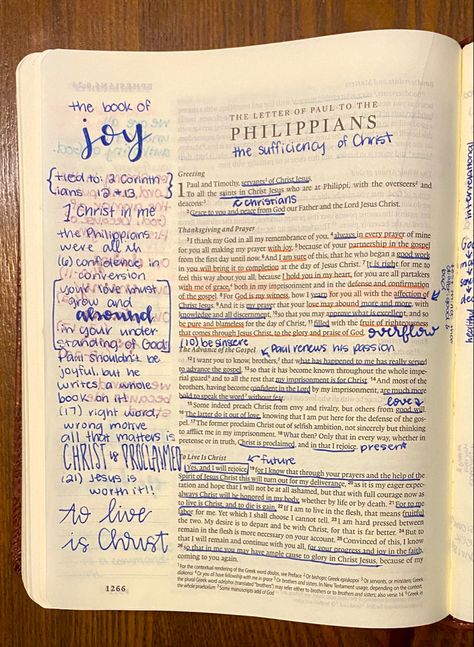 the book of
joy
{tied to: 2 Corinth
ians 12 + 13}
1 Christ in me
the Philippians
were all in
(6) confidence in
conversion
your love must
grow and
abound
in your under
standing of God
Paul shouldn't be
joyful, but he
writes a whole
book on it!
(17) right word,
wrong motive
all that matters is
CHRIST is PROCLAIMED
(21) Jesus is
worth it!!
to live
is Christ
1266
THE LETTER OF PAUL TO THE
PHILIPPIANS
the sufficiency of Christ
Greeting
1 Paul and Timothy, servants of Christ Jesus,
To all the saints in Christ Jesus who are at Philippi, with the overseers and
deacons:
christians
2 Grace to you and peace from God our Father and the Lord Jesus Christ.
Thanksgiving and Prayer
3 I thank my God in all my remembrance of you, 4 always in every prayer of mine
for you all making my prayer with joy, 5 because of your partnership in the gospel
from the first day until now. 6 And I am sure of this, that he who began a good work
in you will bring it to completion at the day of Jesus Christ. 7 It is right for me to
feel this way about you all, because I hold you in my heart, for you are all partakers
with me of grace, both in my imprisonment and in the defense and confirmation
of the gospel. 8 For God is my witness, how I yearn for you all with the affection of
Christ Jesus. 9 And it is my prayer that your love may abound more and more, with
knowledge and all discernment, 10 so that you may approve what is excellent, and so
be pure and blameless for the day of Christ, 11 filled with the fruit of righteousness
that comes through Jesus Christ, to the glory and praise of God. overflow
(10) be sincere
Paul renews his passion
The Advance of the Gospel
12 I want you to know, brothers, that what has happened to me has really served
to advance the gospel, 13 so that it has become known throughout the whole imper-
ial guard and to all the rest that my imprisonment is for Christ. 14 And most of the
brothers, having become confident in the Lord by my imprisonment, are much more
bold to speak the word without fear.
love
15 Some indeed preach Christ from envy and rivalry, but others from good will.
16 The latter do it out of love, knowing that I am put here for the defense of the gos-
pel. 17 The former proclaim Christ out of selfish ambition, not sincerely but thinking
to afflict me in my imprisonment. 18 What then? Only that in every way, whether in
pretense or in truth, Christ is proclaimed, and in that I rejoice. present
To Live Is Christ
future
Yes, and I will rejoice, 19 for I know that through your prayers and the help of the
Spirit of Jesus Christ this will turn out for my deliverance, 20 as it is my eager expec-
tation and hope that I will not be at all ashamed, but that with full courage now as
always Christ will be honored in my body, whether by life or by death. 21 For to me
to live is Christ, and to die is gain. 22 If I am to live in the flesh, that means fruitful
labor for me. Yet which I shall choose I cannot tell. 23 I am hard pressed between
the two. My desire is to depart and be with Christ, for that is far better. 24 But to
remain in the flesh is more necessary on your account. 25 Convinced of this, I know
that I will remain and continue with you all, for your progress and joy in the faith,
26 so that in me you may have ample cause to glory in Christ Jesus, because of my
coming to you again.